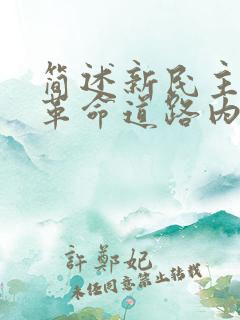 简述新民主
革命道路内
許鄭妃
未经同意禁止转载